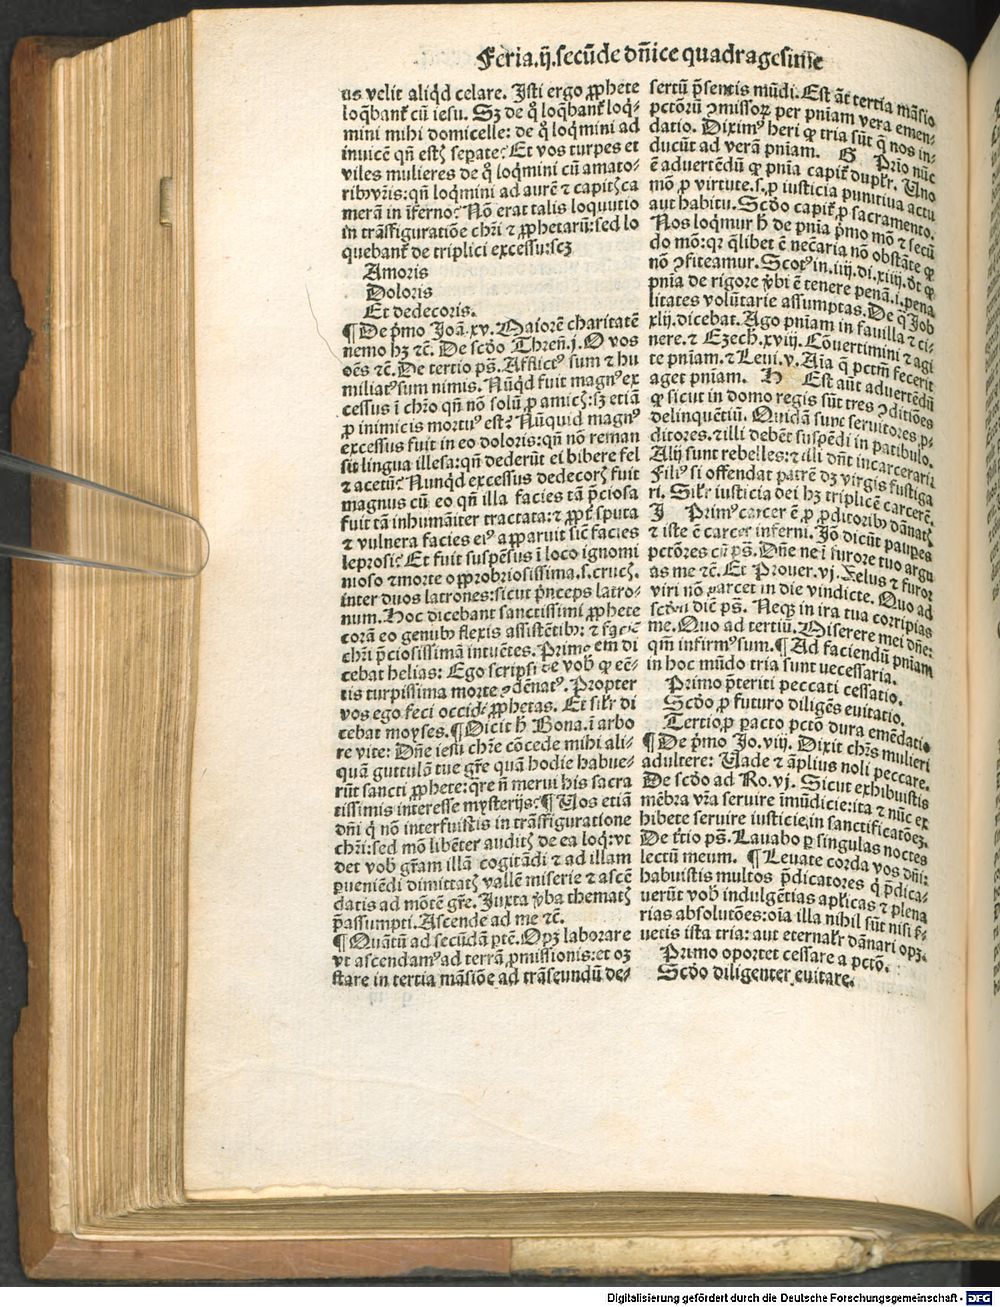 Feria.ij.secūde dñice quadragesime
us velit aliqd celare. Isti ergo ꝓphete
loqbant᷑ cū iesu. Sꝫ de q̊ loqbant᷑ loq-
mini mihi domicelle: de q̊ loqmini ad
inuicē qñ estꝭ seꝑate? Et vos turpes et
viles mulieres de q̊ loqmini cū amato-
ribꝰ vr̃is: qñ loqmini ad aurē ⁊ capitꝭ ca
merā in īferno? Nō erat talis loquutio
in trāsfiguratiōe chr̃i ⁊ ꝓphetarū: sed lo
quebant᷑ de triplici excessu: scꝫ
Amoris
Doloris
Et dedecoris.
¶ De p̃mo Joā.xv. Maiorē charitatē
nemo hꝫ ⁊c̄. De scd̃o Thren̄.j. O vos
oēs ⁊c̄. De tertio ps̄. Afflictꝰ sum ⁊ hu
miliatꝰ sum nimis. Nūqd fuit magnꝰ ex
cessus ī chr̃o qñ nō solū ꝓ amicꝭ: sꝫ etiā
ꝓ inimicis mortuꝰ est? Nūquid magnꝰ
excessus fuit in eo doloris: qñ nō reman
sit lingua illesa: qñ dederūt ei bibere fel
⁊ acetū? Nunqd excessus dedecorꝭ fuit
magnus cū eo qñ illa facies tā p̃ciosa
fuit tā inhumāiter tractata: ⁊ ꝓpt᷑ sputa
⁊ vulnera facies eiꝰ apparuit sic̄ facies
leprosi? Et fuit suspēsus ī loco ignomi
nioso ⁊ morte opprobriosissima.s.crucꝭ.
inter duos latrones: sicut p̃nceps latro-
num. Hoc dicebant sanctissimi ꝓphete
corā eo genubꝰ flexis assistētibꝰ: ⁊ facie
chr̃i p̃ciosissimā intuētes. Primo em̄ di
cebat helias: Ego scripsi de vob̃ ꝙ eē-
tis turpissima morte ꝯdēnatꝰ. Propter
vos ego feci occidi ꝓphetas. Et sil̃r di
cebat moyses. ¶ Dicit h̃ Bona. ī arbo
re vite: Dñe iesu chr̃e cōcede mihi ali-
quā guttulā tue gr̃e quā hodie habue-
rūt sancti ꝓphete: qre ñ merui his sacra
tissimis interesse mysterijs? ¶ Vos etiā
dñi q̇ nō interfuistis in trāsfiguratione
chr̃i: sed mō libēter auditꝭ de ea loq: vt
det vob̃ gr̃am illā cogitādi ⁊ ad illam
ꝑueniēdi dimittatꝭ vallē miserie ⁊ ascē
datis ad mōtē gr̃e. Juxta ꝟba thematꝭ
p̃assumpti. Ascende ad me ⁊c̄.
¶ Quātū ad secūdā ptē. Opꝫ laborare
vt ascendamꝰ ad terrā ꝓmissionis: et oꝫ
stare in tertia māsiōe ad trāseundū de-
sertū p̃sentis mūdi. Est āt tertia māsio
pctōrū ꝯmissoꝝ per pniam vera emen-
datio. Diximꝰ heri ꝙ tria sūt q̄ nos in-
ducūt ad verā pniam. G Prio nūc
ē aduertēdū ꝙ pnia capit᷑ duplr̃. Uno
mō ꝓ virtute.s.ꝓ iusticia punitiua actu
aut habitu. Scd̃o capit᷑ ꝓ sacramento.
Nos loqmur h̃ de pnia p̃mo mō ⁊ secū
do mō: qꝛ q̄libet ē nec̄aria nō obstāte ꝙ
nō ꝯfiteamur. Scotꝰ in.iiij.di.xiiij.dt̄ ꝙ
pnia de rigore ꝟbi ē tenere penā.i.pena
litates volūtarie assumptas. De q̄ Job
xlij. dicebat. Ago pniam in fauilla ⁊ ci-
nere. ⁊ Ezech̄.xviij. Cōuertimini ⁊ agi
te pniam. ⁊ Leui.v. Aīa q̄ pctm̄ fecerit
aget pniam. H Est aūt aduertēdū
ꝙ sicut in domo regis sūt tres ꝯditiōes
delinquētiū. Quidā sunt seruitores ꝓ-
ditores. ⁊ illi debēt suspēdi in patibulo.
Alij sunt rebelles: ⁊ illi dn̄t incarcerari.
Filiꝰ si offendat patrē dꝫ virgis fustiga
ri. Sil̃r iusticia dei hꝫ triplicē carcerē.
J Primꝰ carcer ē ꝓ ꝓditoribꝰ dānatꝭ
⁊ iste ē carcer inferni. Jō dicūt paupes
pctōres cū ps̄. Dñe ne ī furore tuo argu
as me ⁊c̄. Et Prouer.vj. Zelus ⁊ furor
viri nō parcet in die vindicte. Quo ad
scd̃m dic̄ ps̄. Neqꝫ in ira tua corripias
me. Quo ad tertiū. Miserere mei dñe:
qm̄ infirmꝰ sum. ¶ Ad faciendū pniam
in hoc mūdo tria sunt necessaria.
Primo p̃teriti peccati cessatio.
Scd̃o ꝓ futuro diligēs euitatio.
Tertio, ꝓ ꝑacto pctō dura emēdatio
¶ De p̃mo Jo.viij. Dixit chr̃s mulieri
adultere: Uade ⁊ āplius noli peccare.
De scd̃o ad Ro.vj. Sicut exhibuistis
mēbra vr̃a seruire īmūdicie: ita ⁊ nūc ex
hibete seruire iusticie, in sanctificatōeꝫ.
De t̃tio ps̄. Lauabo ꝑ singulas noctes
lectū meum. ¶ Leuate corda vos dñi:
habuistis multos p̃dicatores q̇ p̃dica-
uerūt vob̃ indulgētias aplicas ⁊ plena
rias absolutōes: oīa illa nihil sūt nisi f̃-
uetis ista tria: aut eternalr̃ dānari opꝫ.
Primo oportet cessare a pctō.
Scd̃o diligenter euitare.
Digitalisierung gefördert durch die Deutsche Forschungsgemeinschaft - DFG